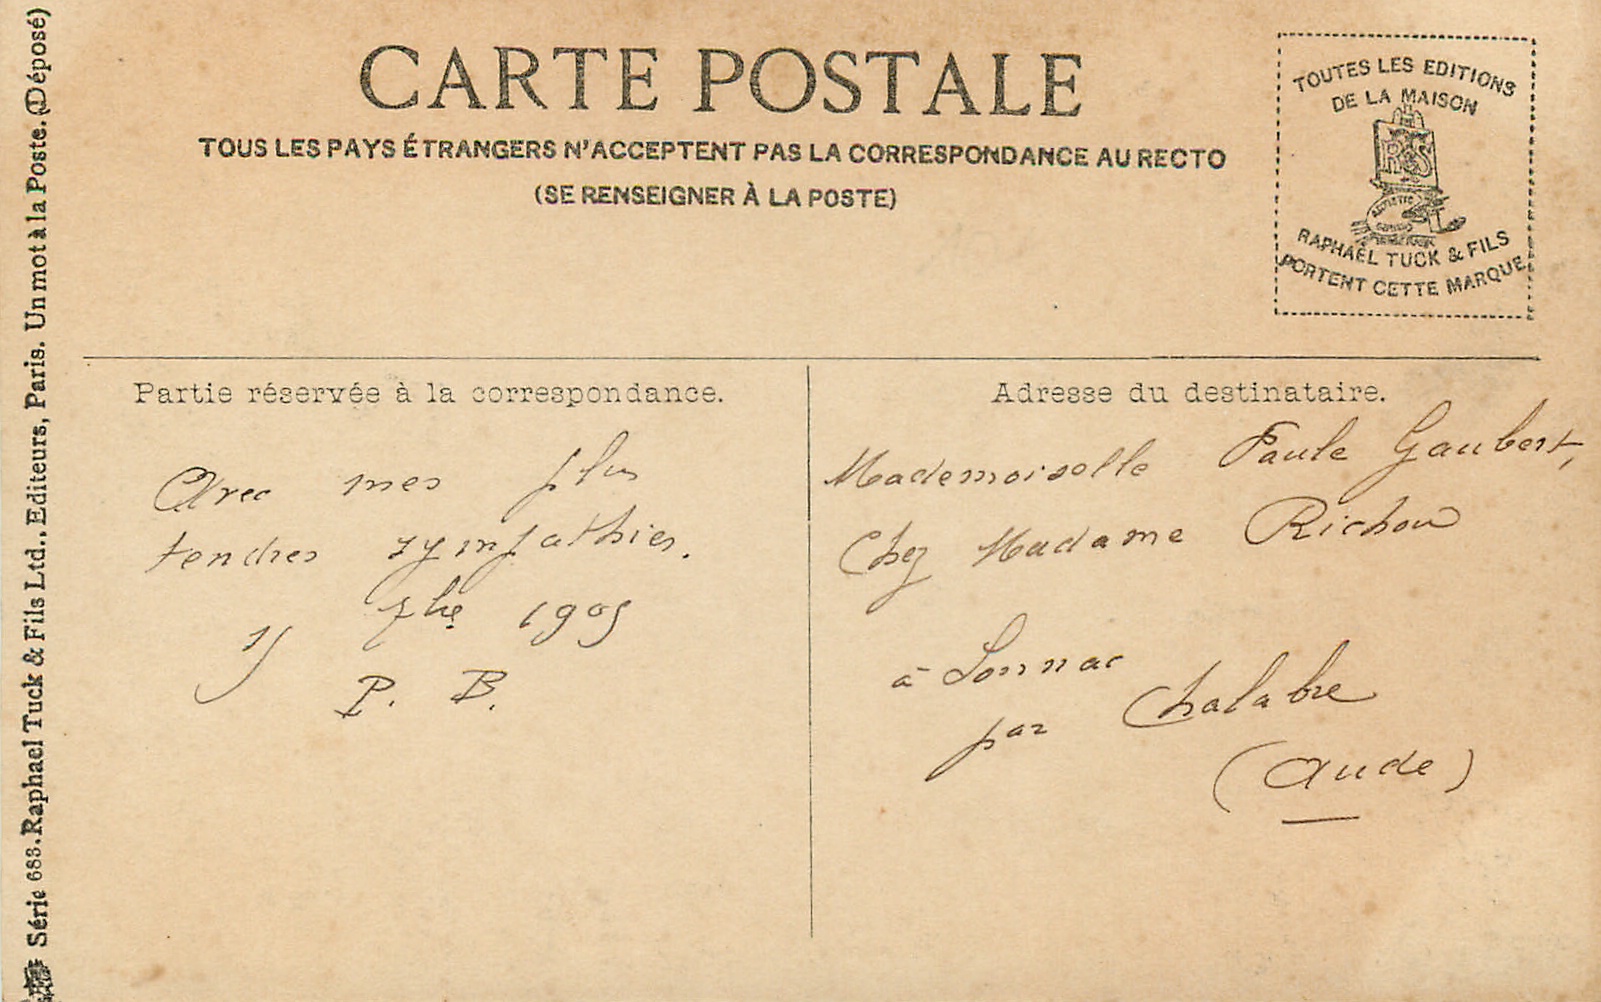 CARTE POSTALE
TOUS LES PAYS ÉTRANGERS N'ACCEPTENT PAS LA CORRESPONDANCE AU RECTO
(SE RENSEIGNER À LA POSTE)
TOUTES LES EDITIONS
DE LA MAISON
R&S
ARTISTIC
RAPHAËL TUCK & FILS
PORTENT CETTE MARQUE
Série 683. Raphael Tuck & Fils Ltd., Editeurs, Paris. Un mot à la Poste. (Déposé)
Partie réservée à la correspondance.
Avec mes plus
tendres sympathies.
7bre 1905
P. B.
Adresse du destinataire.
Mademoiselle Paule Gaubert,
Chez Madame Richou
à Sonnac
par Chalabre
(Aude)